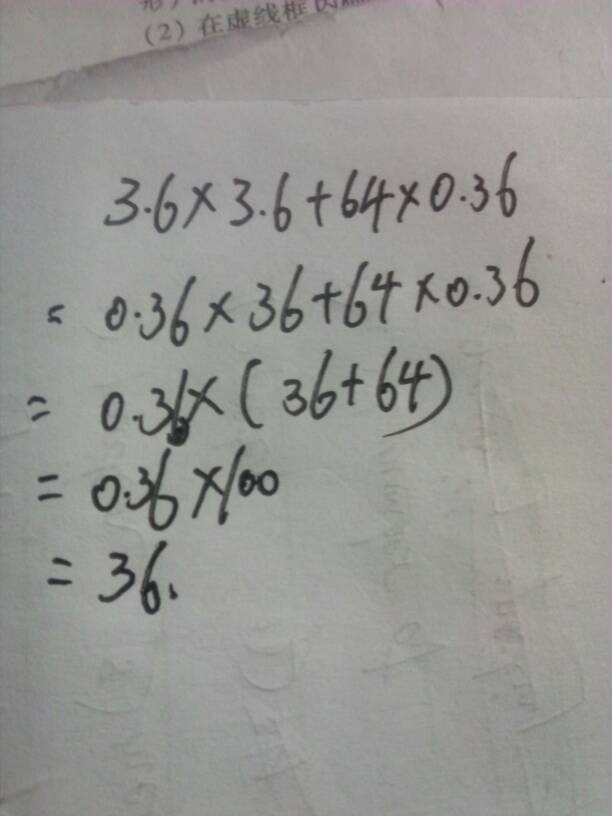 (2)在虚线框
3.6×3.6+64×0.36
= 0.36×36+64×0.36
= 0.36×(36+64)
= 0.36×100
= 36.